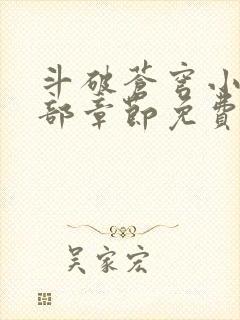 斗破苍穹小
部章節免費
吴家宏